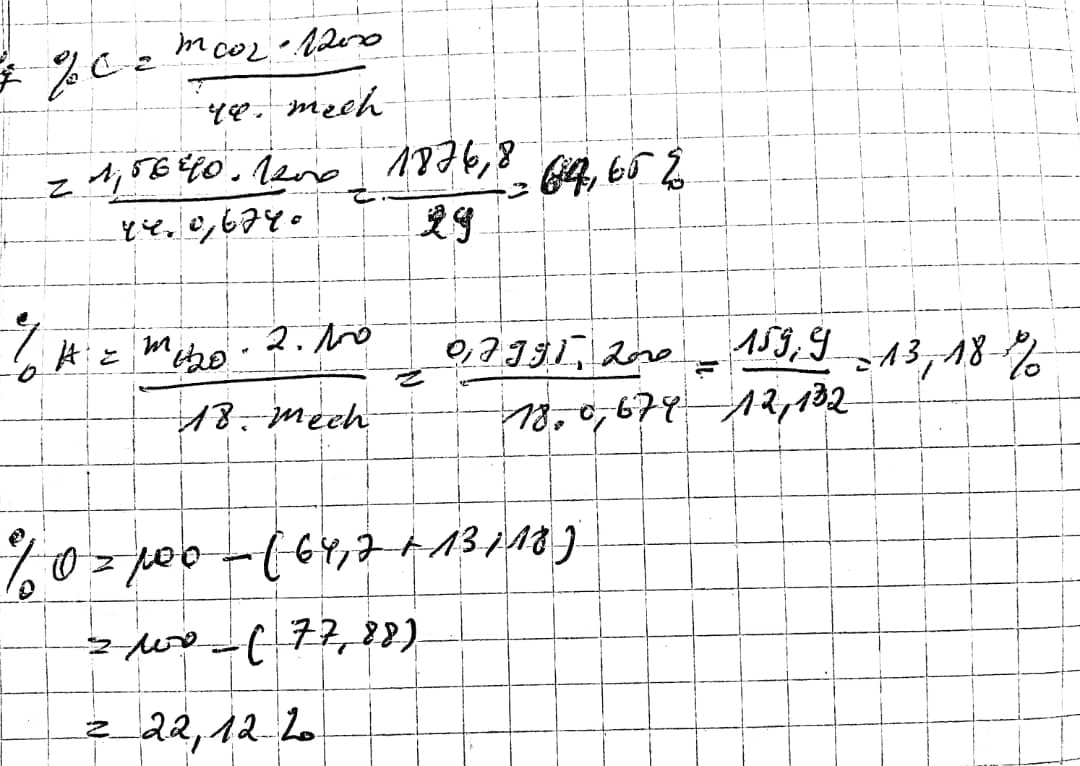 % C = m CO2 . 1200 / 44 . mech
= 1,5640 . 1200 / 44 . 0,6740 = 1876,8 / 29 = 64,65 %
% H = m H2O . 2 . 100 / 18 . mech = 0,7995 . 200 / 18 . 0,674 = 159,9 / 12,132 = 13,18 %
% O = 100 - ( 64,7 + 13,18 )
= 100 - ( 77,88 )
= 22,12 %